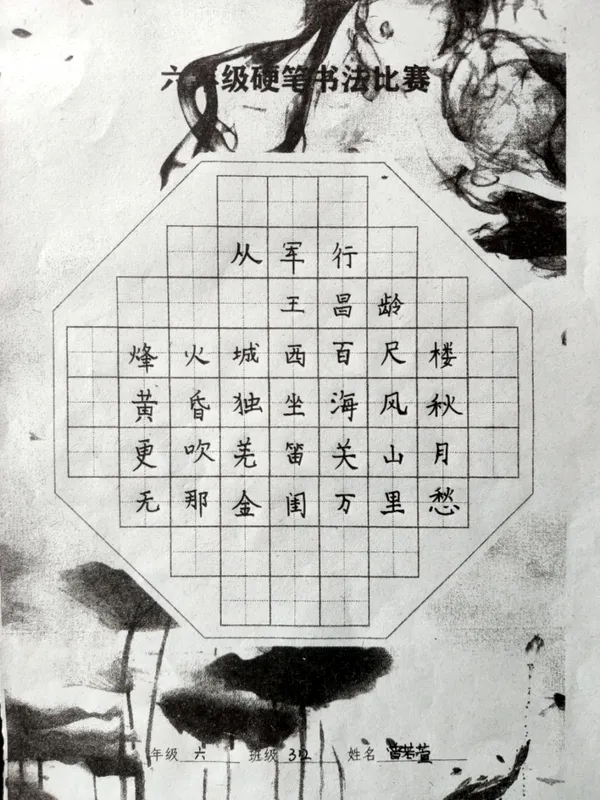 六年级硬笔书法比赛
从军行
王昌龄
烽火城西百尺楼
黄昏独坐海风秋
更吹羌笛关山月
无那金闺万里愁
年级 六 班级 姓名